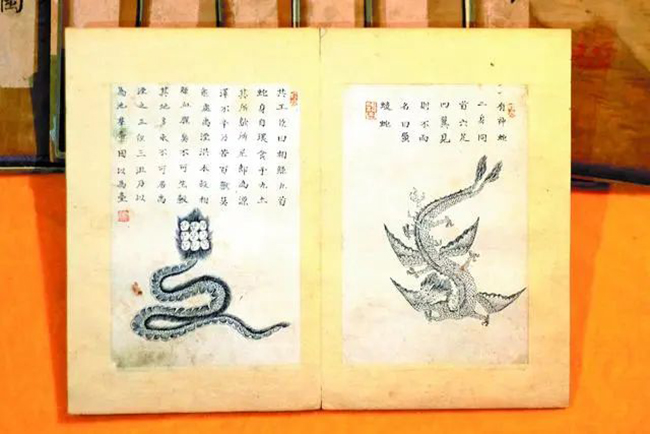 有神蛇
二身同
首六足
四翼見
則不雨
名曰
蛇
共工臣曰相繇九首
蛇身自環食于九土
其所歍所尼即為源
澤不辛乃苦百獸莫
能處禹湮洪水殺相
繇血腥臭不可生穀
其地多水不可居禹
湮之三仞三沮乃以
為池羣帝因以為臺